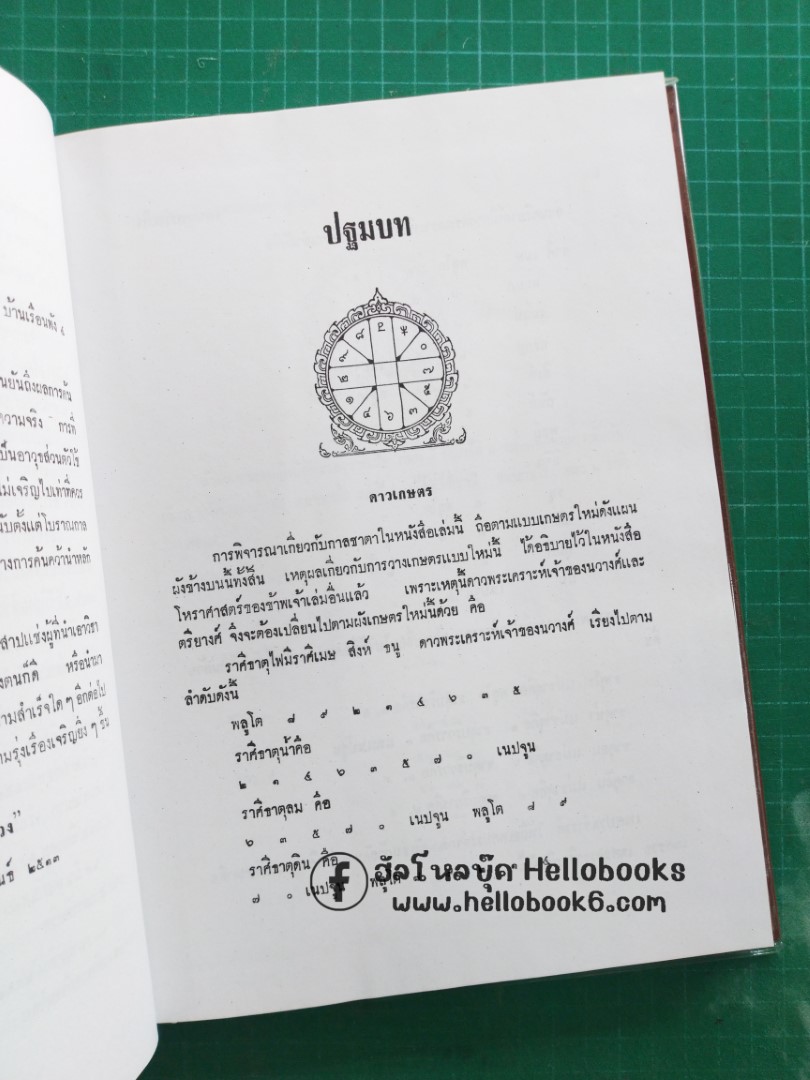 บ้านเรือนทั้ง ๔
นยันถึงผลการค้น
ความจริง การที่
ป็นอาวุธส่วนตัวใช้
ม่เจริญไปเท่าที่ควร
นับตั้งแต่โบราณกาล
างการค้นคว้านำหลัก
สาปแช่งผู้ที่นำเอาวิชา
งตนก็ดี หรือนำมา
ามสำเร็จใด ๆ อีกต่อไป
มรุ่งเรืองเจริญยิ่ง ๆ ขึ้น
วง"
นธ์ ๒๕๑๓
ปฐมบท
๘
๐
๙
๗
๒
๕
๑
๓
๔
๖
ดาวเกษตร
การพิจารณาเกี่ยวกับกาลชาตาในหนังสือเล่มนี้ ถือตามแบบเกษตรใหม่ดังแผน
ผังข้างบนนี้ทั้งสิ้น เหตุผลเกี่ยวกับการวางเกษตรแบบใหม่นี้ ได้อธิบายไว้ในหนังสือ
โหราศาสตร์ของข้าพเจ้าเล่มอื่นแล้ว เพราะเหตุนี้ดาวพระเคราะห์เจ้าของนวางค์และ
ตรียางค์ จึงจะต้องเปลี่ยนไปตามผังเกษตรใหม่นี้ด้วย คือ
ราศีธาตุไฟมีราศีเมษ สิงห์ ธนู ดาวพระเคราะห์เจ้าของนวางค์ เรียงไปตาม
ลำดับดังนี้
พลูโต ๘ ๙ ๒ ๑ ๔ ๖ ๓ ๕
ราศีธาตุน้ำคือ
๒ ๑ ๔ ๖ ๓ ๕ ๗ ๐ เนปจูน
ราศีธาตุลม คือ
๖ ๓ ๕ ๗ ๐ เนปจูน พลูโต ๘ ๙
ราศีธาตุดิน คือ
๗ ๐ เนปจูน พลูโต
ฮัลโหลบุ๊ค Hellobooks
www.hellobook6.com